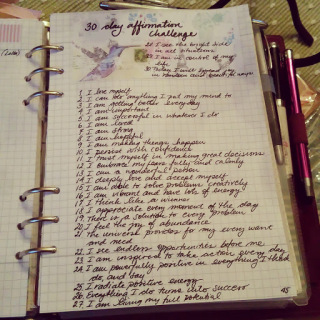 30 day affirmation
challenge
28 I see the bright side
in all situations
29 I am in control of my
life
30 Today I will
1 I love myself
2 I can do anything I put my mind to
3 I am getting better everyday
4 I am important
5 I am successful in whatever I do
6 I am loved
7 I am strong
8 I am hopeful
9 I am making things happen
10 I decide with confidence
11 I trust myself in making great decisions
12 I embrace my fears fully and calmly
13 I am a wonderful person
14 I deeply love and accept myself
15 I am able to solve problems creatively
16 I am vibrant and have lots of energy
17 I think like a winner
18 I appreciate every moment of the day
19 There is a solution to every problem
20 I feel the joy of abundance
21 The universe provides for my every want
and need
22 I see endless opportunities before me
23 I am inspired to take action every day
24 I am powerfully positive in everything I think
do, and say
25 I radiate positive energy
26 Everything I do turns into success
27 I am living my full potential
45